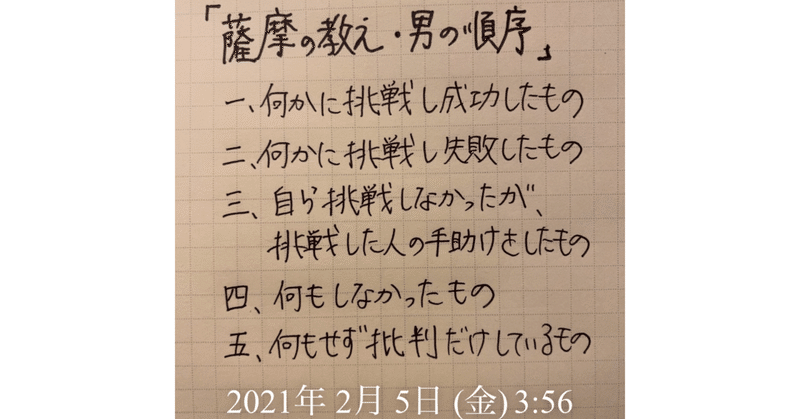 「薩摩の教え・男の順序」
一、何かに挑戦し成功したもの
二、何かに挑戦し失敗したもの
三、自ら挑戦しなかったが、
挑戦した人の手助けをしたもの
四、何もしなかったもの
五、何もせず批判だけしているもの
2021年 2月 5日 (金) 3:56